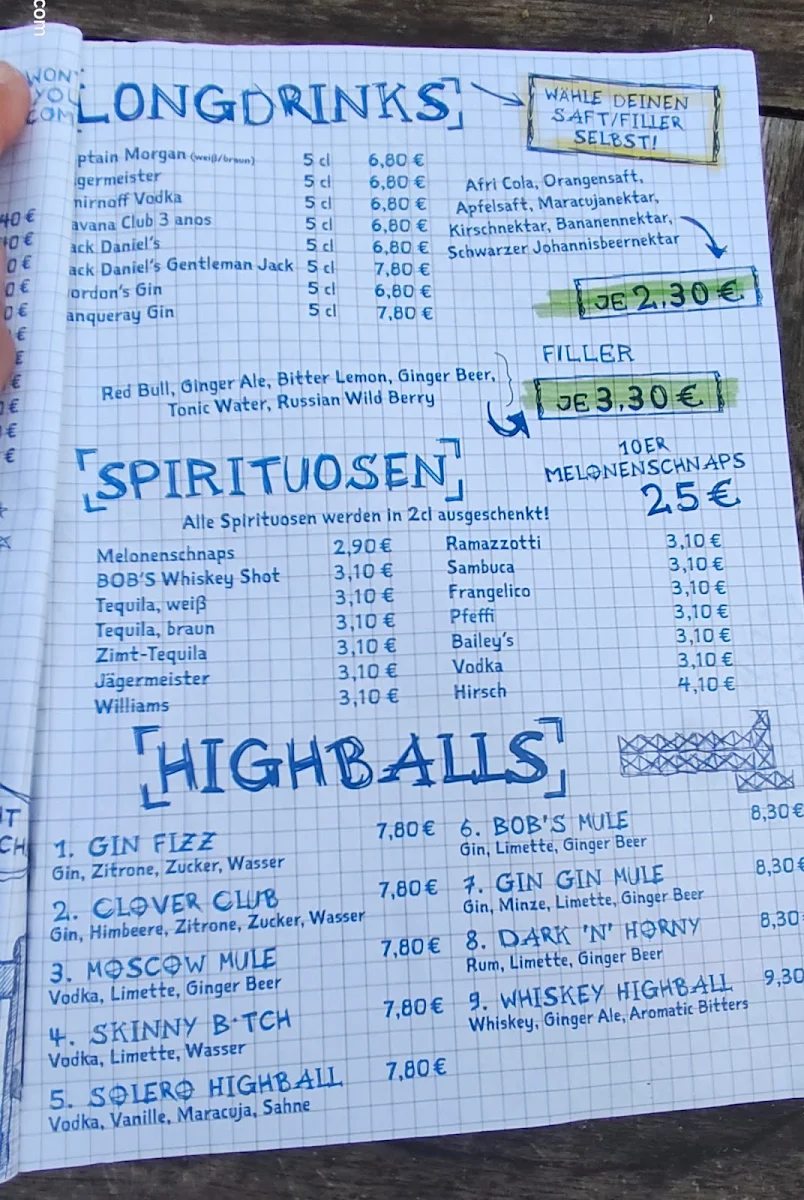 .com
WON'T
YOU
COM
LONGDRINKS
WÄHLE DEINEN
SAFT/FILLER
SELBST!
ptain Morgan (weiß/braun) 5 cl 6,80 €
germeister 5 cl 6,80 €
mirnoff Vodka 5 cl 6,80 €
avana Club 3 anos 5 cl 6,80 €
ack Daniel's 5 cl 6,80 €
ack Daniel's Gentleman Jack 5 cl 7,80 €
ordon's Gin 5 cl 6,80 €
anqueray Gin 5 cl 7,80 €
Afri Cola, Orangensaft,
Apfelsaft, Maracujanektar,
Kirschnektar, Bananennektar,
Schwarzer Johannisbeernektar
JE 2,30 €
FILLER
Red Bull, Ginger Ale, Bitter Lemon, Ginger Beer,
Tonic Water, Russian Wild Berry
JE 3,30 €
SPIRITUOSEN
10ER
MELONENSCHNAPS
25 €
Alle Spirituosen werden in 2cl ausgeschenkt!
Melonenschnaps 2,90 €
BOB'S Whiskey Shot 3,10 €
Tequila, weiß 3,10 €
Tequila, braun 3,10 €
Zimt-Tequila 3,10 €
Jägermeister 3,10 €
Williams 3,10 €
Ramazzotti 3,10 €
Sambuca 3,10 €
Frangelico 3,10 €
Pfeffi 3,10 €
Bailey's 3,10 €
Vodka 3,10 €
Hirsch 4,10 €
HIGHBALLS
1. GIN FIZZ 7,80 €
Gin, Zitrone, Zucker, Wasser
2. CLOVER CLUB 7,80 €
Gin, Himbeere, Zitrone, Zucker, Wasser
3. MOSCOW MULE 7,80 €
Vodka, Limette, Ginger Beer
4. SKINNY B*TCH 7,80 €
Vodka, Limette, Wasser
5. SOLERO HIGHBALL 7,80 €
Vodka, Vanille, Maracuja, Sahne
6. BOB'S MULE 8,30 €
Gin, Limette, Ginger Beer
7. GIN GIN MULE 8,30 €
Gin, Minze, Limette, Ginger Beer
8. DARK 'N' HORNY 8,30
Rum, Limette, Ginger Beer
9. WHISKEY HIGHBALL 9,30
Whiskey, Ginger Ale, Aromatic Bitters